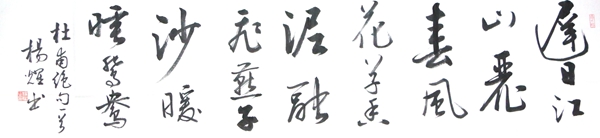 遲日江
山麗
春風
花草香
泥融
飛燕子
沙暖
睡鴛鴦
杜甫絕句之一
楊輝書